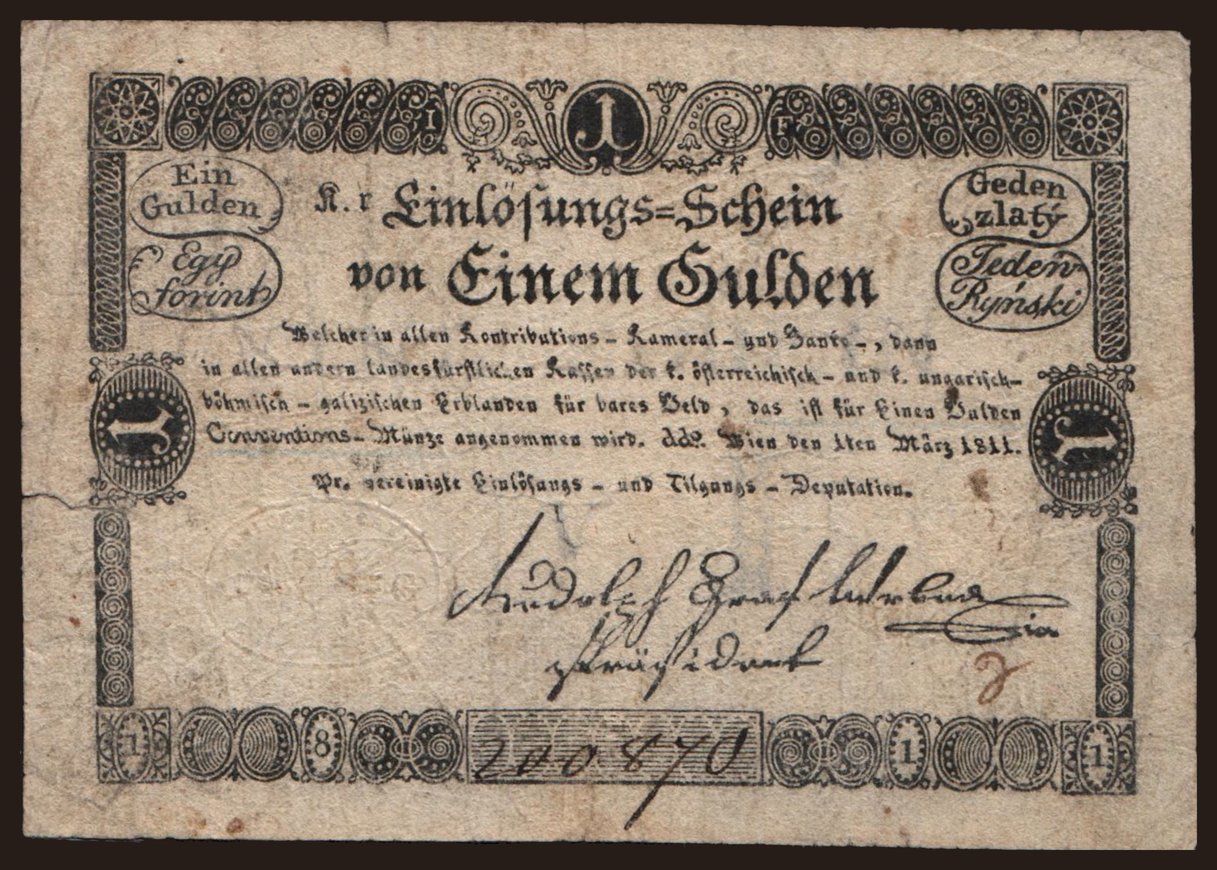 I 1 F
Ein
Gulden
Egy
forint
Geden
zlatý
Jeden
Ryński
K. r Einlösungs=Schein
von Einem Gulden
Welcher in allen Kontributions- Kameral- und Banko-, dann
in allen andern landesfürstlichen Kassen der k. österreichisch- und k. ungarisch-
böhmisch- galizischen Erblanden für bares Geld, das ist für Einen Gulden
Conventions- Münze angenommen wird. ddo. Wien den 1ten März 1811.
Pr. vereinigte Einlösungs- und Tilgungs- Deputation.
1 1
Rudolph Graf Wrbna
Präsident
1 8 200870 1 1